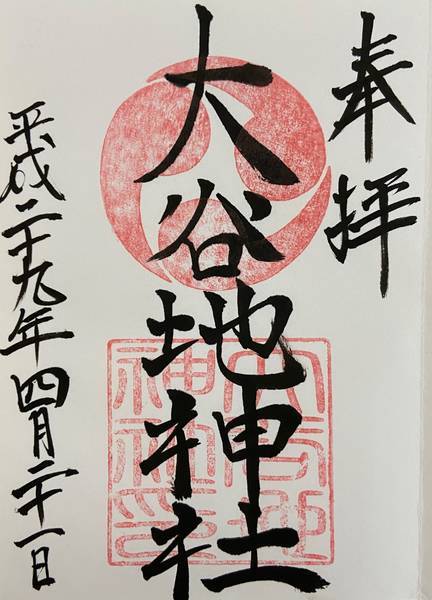 奉拝
大谷地神社
大谷地神社印
平成二十九年四月二十一日